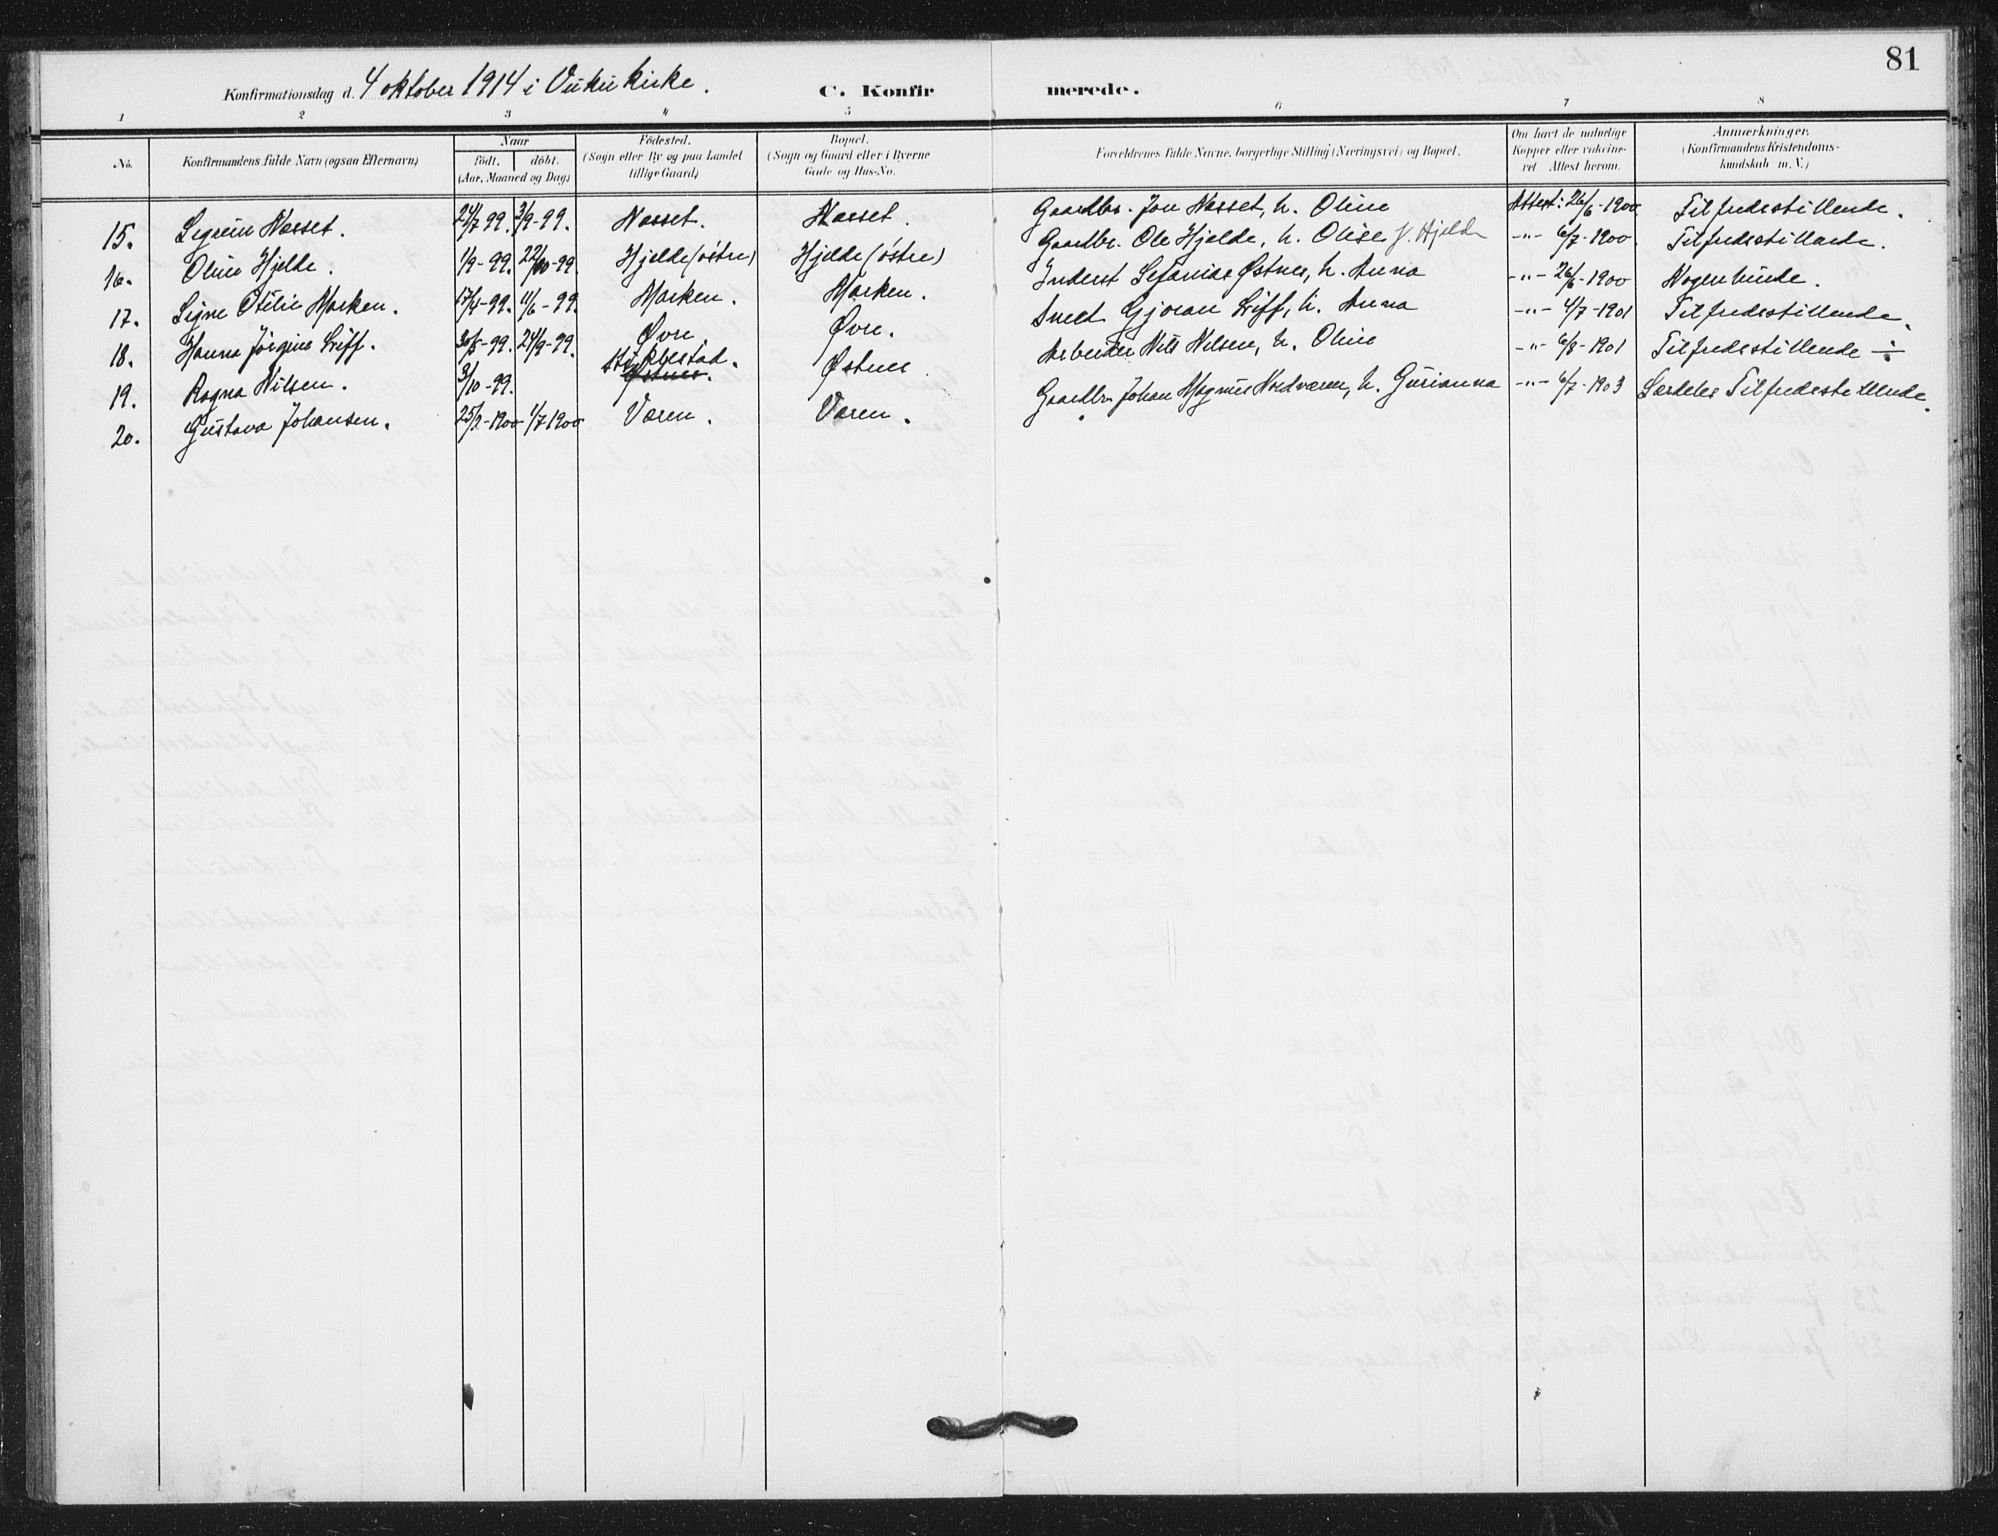 81
Konfirmationsdag d. 4 oktober 1914 i Vuku kirke.
C. Konfirmerede.
1 2 3 4 5 6 7 8
No. Konfirmandens fulde Navn (ogsaa Efternavn) Naar födt. döbt. (Aar, Maaned og Dag) Födested. (Sogn eller By og paa Landet tillige Gaard) Bopæl. (Sogn og Gaard eller i Byerne Gade og Hus-No. Forældrenes fulde Navne, borgerlige Stilling (Næringsvei) og Bopæl. Om havt de naturlige Kopper eller vaccineret Attest herom. Anmærkninger. (Konfirmandens Kristendomskundskab m. V.)
15. Sigrun Næsset. 24/7-99. 3/9-99. Næsset. Næsset. Gaardbr. Jon Næsset, h. Oline Attest: 26/6-1900 Tilfredsstillende.
16. Oline Hjelde. 1/9-99. 22/10-99. Hjelde (østre) Hjelde (østre) Gaardbr. Ole Hjelde, h. Olise J. Hjelde -"- 6/7-1900 Tilfredsstillende.
17. Signe Otilie Marken. 17/4-99. 11/6-99. Marken. Marken. Inderst Sefanias Østnes, h. Anna -"- 26/6-1900 Nogenlunde.
18. Hanna Jørgine Siff. 30/5-99. 24/9-99. Øvre. Øvre. Smed Gjøran Siff, h. Anna -"- 4/7-1901 Tilfredsstillende.
19. Ragna Nilsen. 3/10-99. Stiklestad. Østnes. Østnes. Arbeider Nils Nilsen, h. Oline -"- 6/8-1901 Tilfredsstillende ÷
20. Gustava Johansen. 25/2-1900 1/7 1900 Væren. Væren. Gaardbr. Johan Magnus Nordværen, h. Gurianna -"- 6/7-1903 Særdeles Tilfredsstillende.